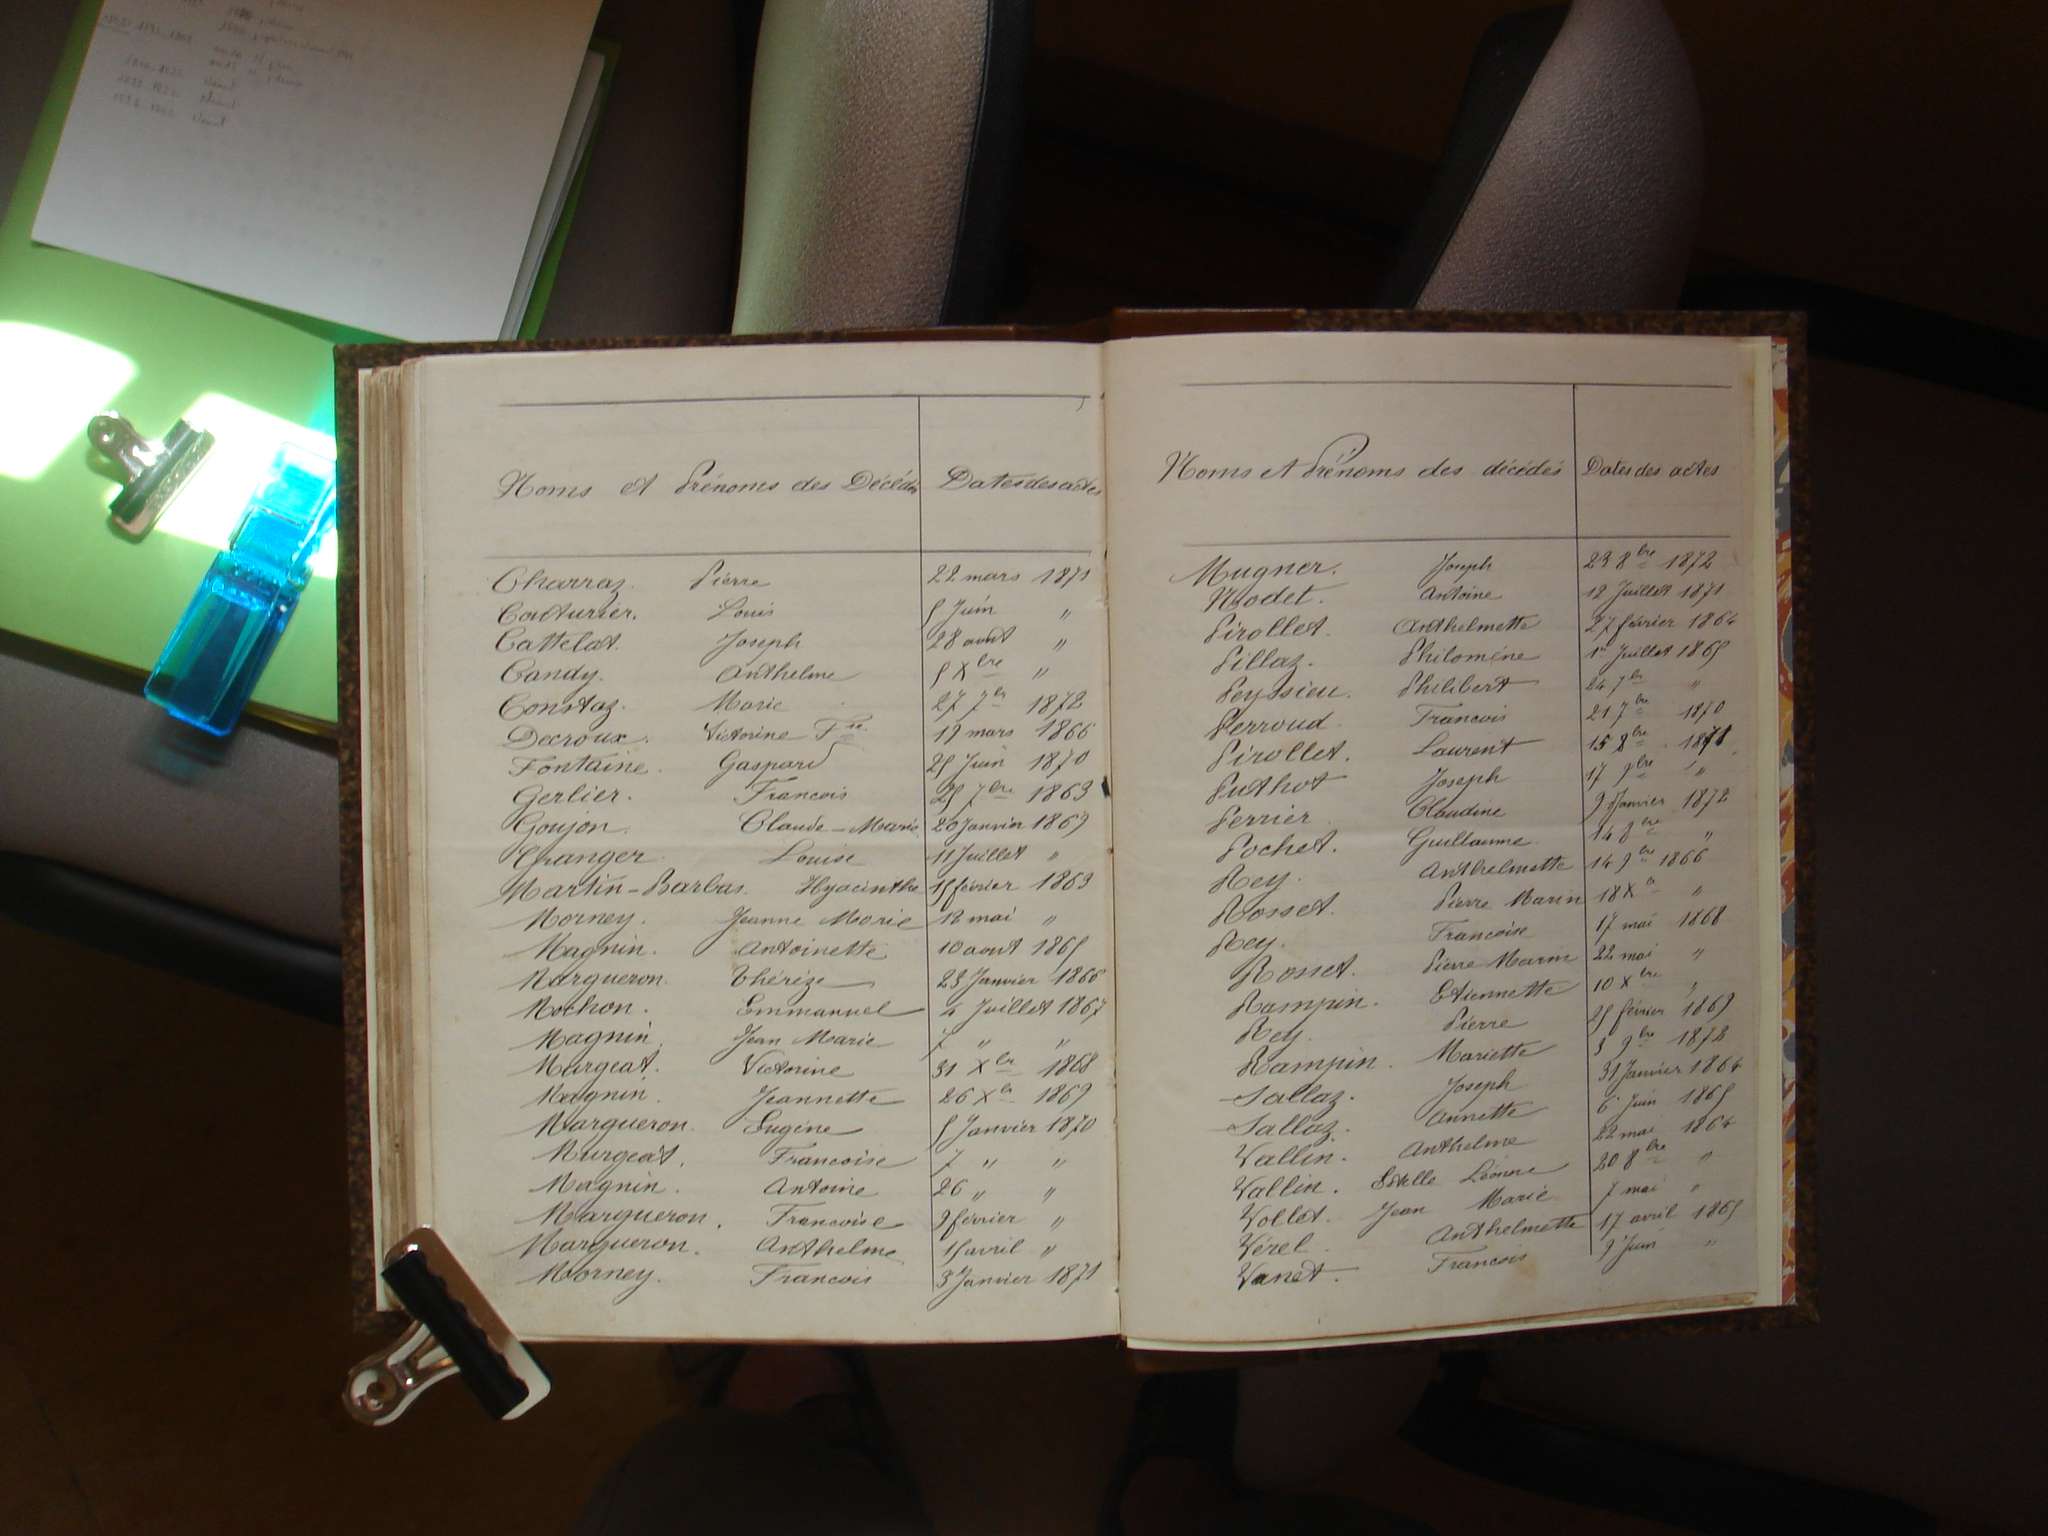 Noms et Prénoms des Décédés Dates des actes
Charraz. Pierre 22 mars 1871
Couturier. Louis 5 Juin "
Cattelat. Joseph 28 aout "
Candy. Anthelme 5 Xbre "
Constaz. Marie 27 7bre 1872
Decroux. Victorine Fse 12 mars 1866
Fontaine. Gaspard 25 Juin 1870
Gerlier. Francois 25 7bre 1863
Goujon. Claude-Marie 20 Janvier 1869
Granger Louise 11 Juillet "
Martin-Barbas. Hyacinthe 15 février 1863
Morney. Jeanne Marie 12 mai "
Magnin. Antoinette 10 aout 1865
Margueron. Thérèze 23 Janvier 1866
Mochon. Emmanuel 4 Juillet 1867
Magnin. Jean Marie 7 " "
Murgeat. Victorine 31 Xbre 1868
Magnin. Jeannette 26 Xbre 1869
Margueron. Eugène 5 Janvier 1870
Murgeat. Francoise 7 " "
Magnin. Antoine 26 " "
Margueron. Francoise 9 février "
Margueron. Anthelme 15 avril "
Morney. Francois 3 Janvier 1871
Noms et Prénoms des décédés Dates des actes
Mugner. Joseph 23 8bre 1872
Nodet. Antoine 12 Juillet 1871
Pirollet. Anthelmette 27 février 1864
Pillaz. Philomène 1er Juillet 1865
Peyssieu. Philibert 24 7bre "
Perroud Francois 21 7bre 1870
Pirollet. Laurent 15 8bre 1871
Puthot Joseph 17 9bre "
Perrier Claudine 9 Janvier 1872
Pochet. Guillaume 14 8bre "
Rey. Anthelmette 14 9bre 1866
Rosset. Pierre Marin 18 Xbre "
Rey. Francoise 17 mai 1868
Rosset. Pierre Marin 22 mai "
Rampin. Etiennette 10 Xbre "
Rey. Pierre 25 février 1869
Rampin. Mariette 3 9bre 1872
Sallaz. Joseph 31 Janvier 1864
Sallaz. Annette 6 Juin 1865
Vallin. Anthelme 22 mai 1864
Vallin. Estelle Léonne 20 8bre "
Vollet. Jean Marie 7 mai "
Vérel. Anthelmette 17 avril 1865
Vanet. Francois 9 Juin "